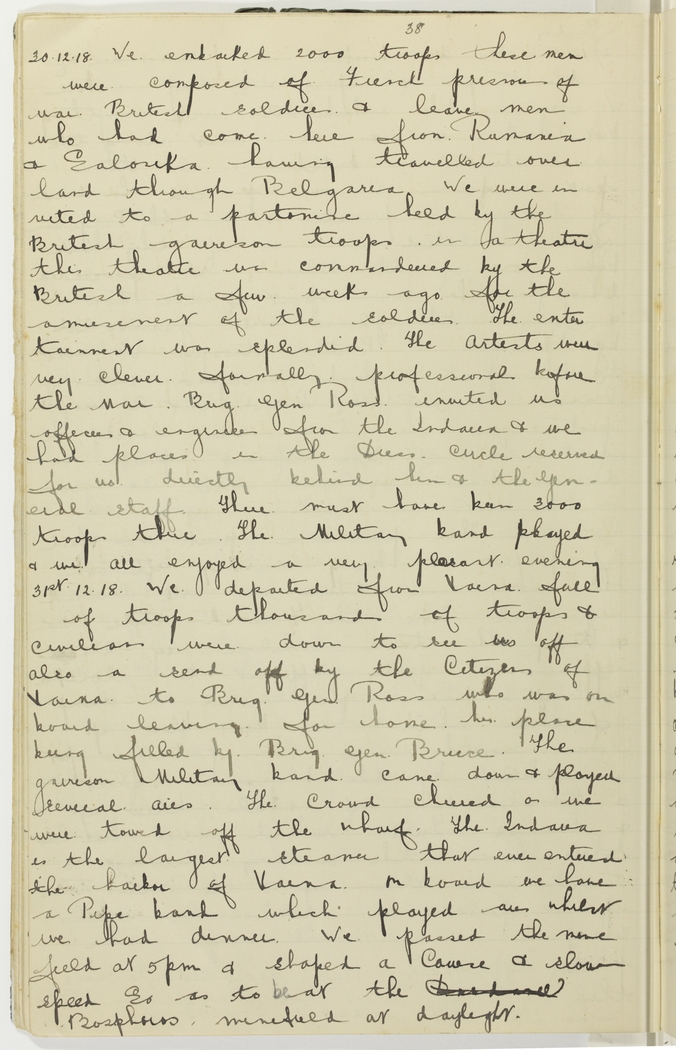 38
30.12.18. We embarked 2000 troops these men
were composed of French prisoners of
war British soldiers & leave men
who had come here from Rumania
& Salonika having travelled over
land through Belgarea We were in
vited to a partomine held by the
British garrison troops. in a theatre
this theatre was commandeered by the
British a few weeks ago for the
amusement of the soldiers. The enter
tainment was splendid. The Artests were
very clever. formally professional before
the war. Brig. Gen Ross. invited us
officers & engineers from the Indarra & we
had places in the Dress. Circle reserved
for us directly behind him & the Gen-
eral staff. There must have been 3000
troops there. The Military band played
& we all enjoyed a very pleasant evening
31st.12.18. We departed from Varna full
of troops thousands of troops &
civilians were down to see us off
also a send off by the Citizens of
Varna to Brig. Gen Ross who was on
board leaving for home. his place
being filled by Brig. Gen. Bruce. The
garrison Military band came down & played
several airs. The Crowd cheered as we
were towed off the wharf. The Indarra
is the largest steamer that ever entered
the harbor of Varna. on board we have
a Pipe band which played airs whilst
we had dinner. We passed the mine
field at 5pm & shaped a Course & slow
speed so as to be at the
Bosphoros. minefield at daylight.